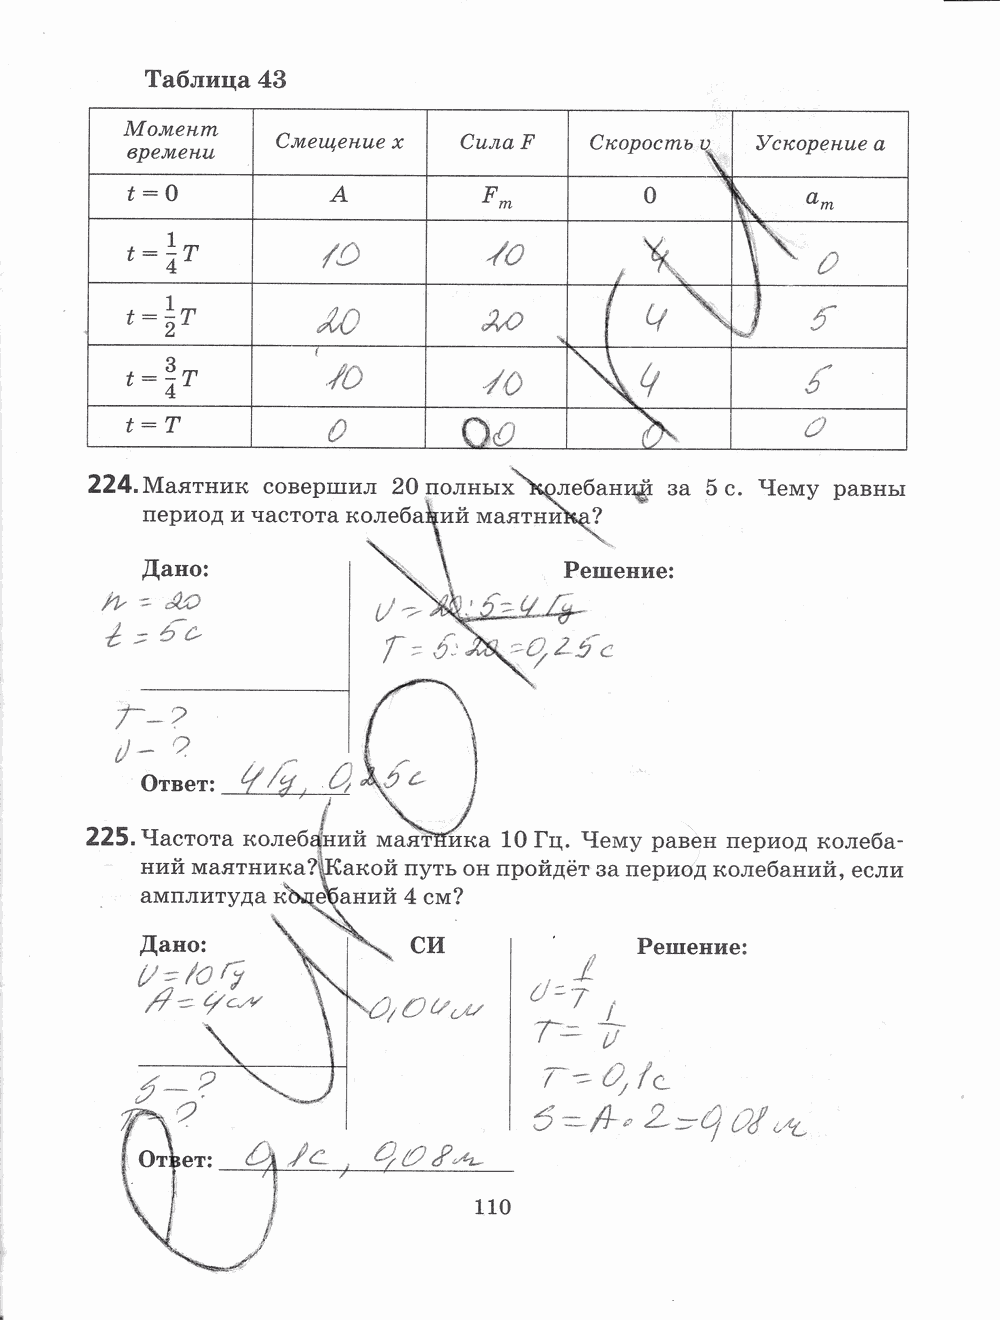 Таблица 43
Момент времени Смещение x Сила F Скорость v Ускорение a
t = 0 A Fm 0 am
t = 1/4 T 10 10 4 0
t = 1/2 T 20 20 4 5
t = 3/4 T 10 10 4 5
t = T 0 00 0 0
224. Маятник совершил 20 полных колебаний за 5 с. Чему равны
период и частота колебаний маятника?
Дано: Решение:
n = 20 υ = 20:5=4 Гц
t = 5 с T = 5:20=0,25 с
T – ?
υ – ?
Ответ: 4 Гц, 0,25 с
225. Частота колебаний маятника 10 Гц. Чему равен период колеба-
ний маятника? Какой путь он пройдёт за период колебаний, если
амплитуда колебаний 4 см?
Дано: СИ Решение:
υ = 10 Гц υ = 1/T
A = 4 см 0,04 м T = 1/υ
T = 0,1 с
S – ? S = A · 2 = 0,08 м
T – ?
Ответ: 0,1 с, 0,08 м
110